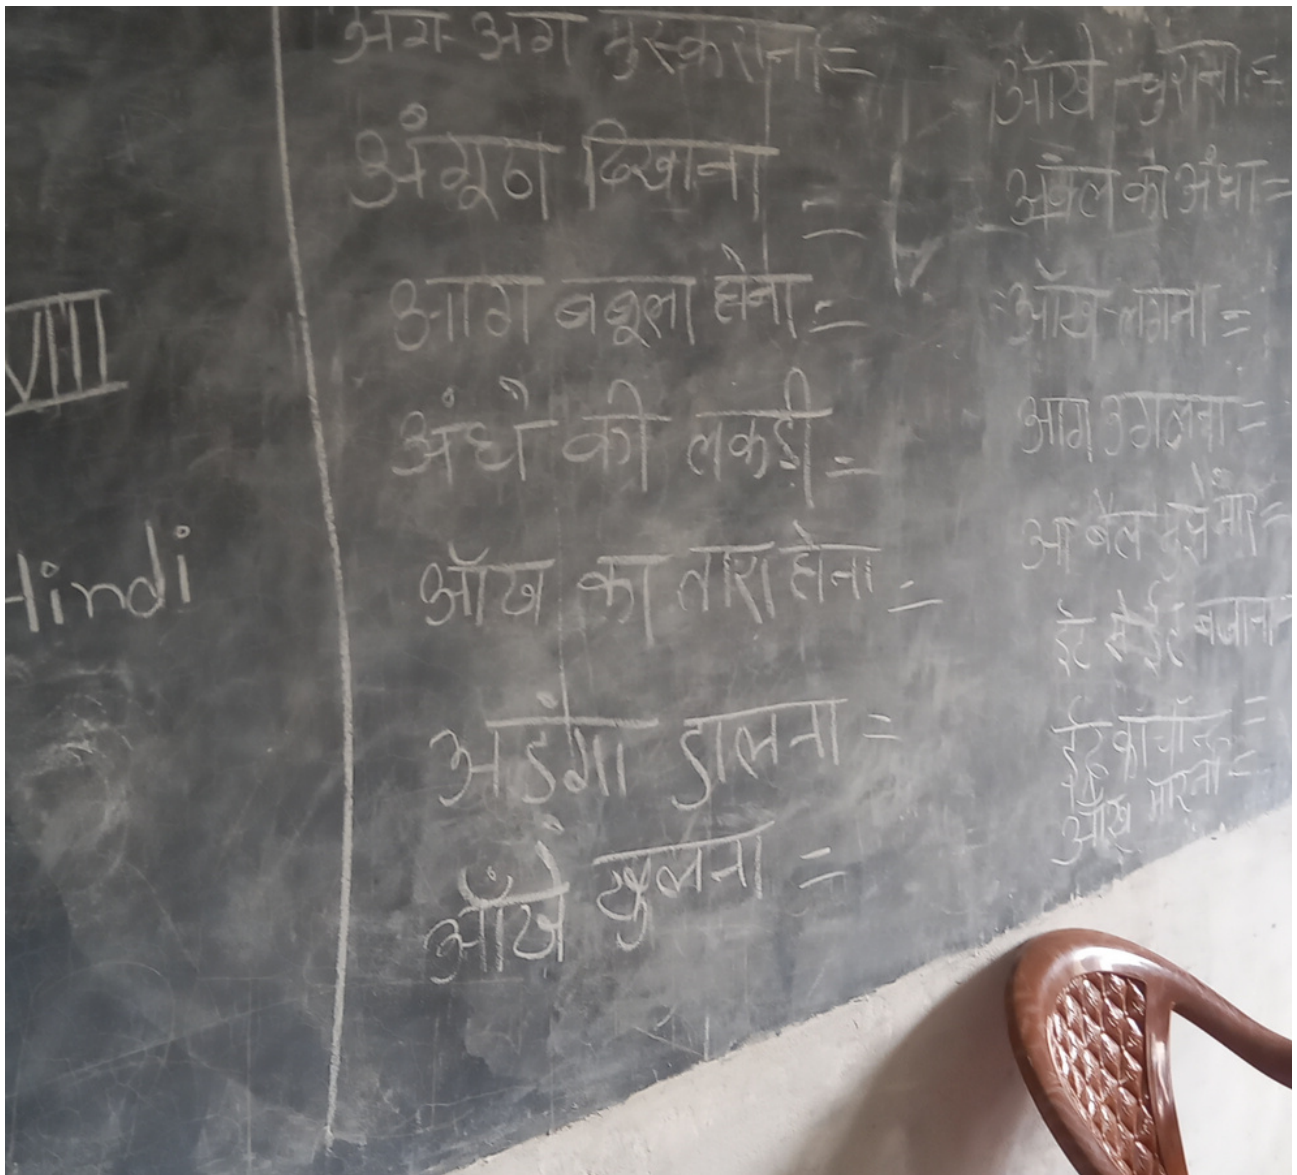 VIII
Hindi
अंग-अंग मुस्कराना =
अंगूठा दिखाना =
आग बबूला होना =
अंधे की लकड़ी =
आँख का तारा होना =
अडंगा डालना =
आँखे खुलना =
आँखे चुराना =
अक्ल का अंधा =
आँख लगना =
आग उगलना =
आ बैल मुझे मार =
ईंट से ईंट बजाना =
ईद का चाँद =
आँख मारना =